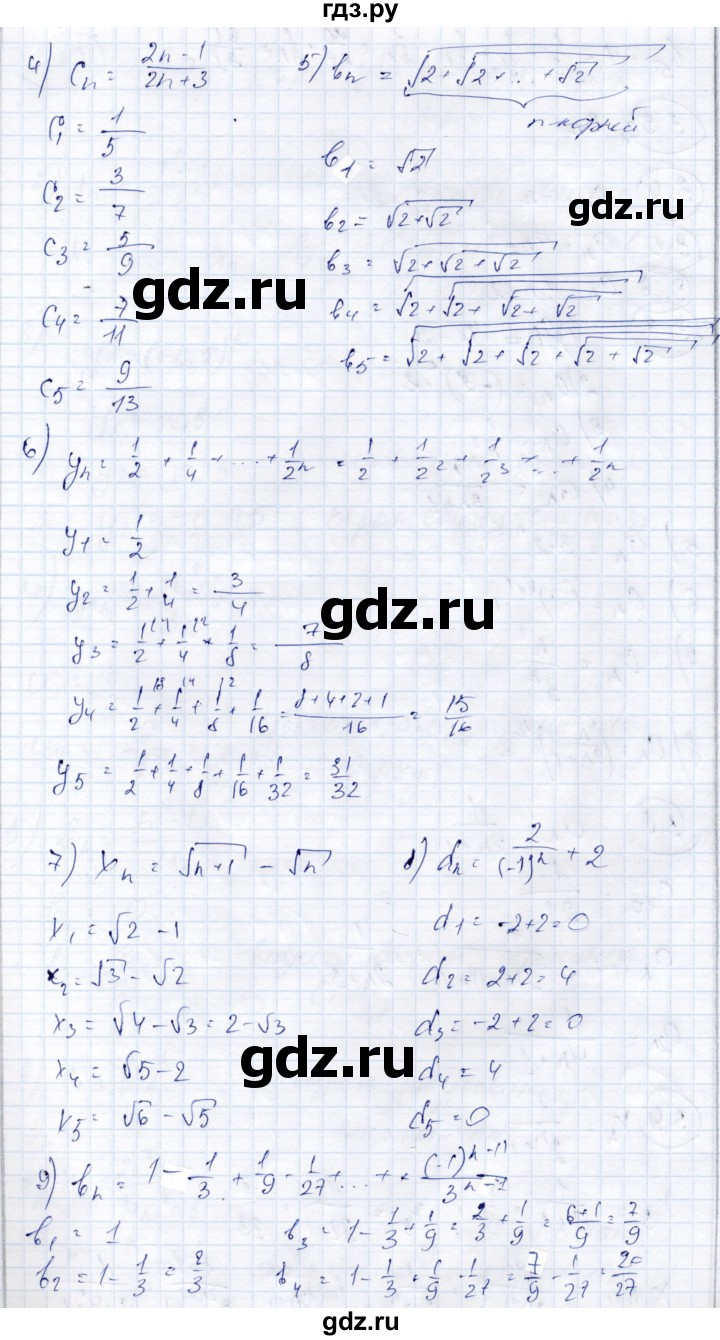 гдз.ру
4) Cₙ = (2n-1)/(2n+3)
C₁ = 1/5
C₂ = 3/7
C₃ = 5/9
C₄ = 7/11
C₅ = 9/13
5) bₙ = √(2+√(2+...+√2))
n корней
b₁ = √2
b₂ = √(2+√2)
b₃ = √(2+√(2+√2))
b₄ = √(2+√(2+√(2+√2)))
b₅ = √(2+√(2+√(2+√(2+√2))))
gdz.ru
gdz.ru
6) yₙ = 1/2 + 1/4 + ... + 1/2ⁿ = 1/2 + 1/2² + 1/2³ + ... + 1/2ⁿ
y₁ = 1/2
y₂ = 1/2 + 1/4 = 3/4
gdz.ru
y₃ = 1/2 + 1/4 + 1/8 = 7/8
y₄ = 1/2 + 1/4 + 1/8 + 1/16 = (8+4+2+1)/16 = 15/16
y₅ = 1/2 + 1/4 + 1/8 + 1/16 + 1/32 = 31/32
7) xₙ = √(n+1) - √n
x₁ = √2 - 1
x₂ = √3 - √2
x₃ = √4 - √3 = 2 - √3
x₄ = √5 - 2
x₅ = √6 - √5
8) dₙ = 2/(-1)ⁿ + 2
d₁ = -2+2=0
d₂ = 2+2=4
d₃ = -2+2=0
d₄ = 4
d₅ = 0
gdz.ru
9) bₙ = 1 - 1/3 + 1/9 - 1/27 + ... + (-1)ⁿ⁻¹/3ⁿ⁻¹
b₁ = 1
b₂ = 1 - 1/3 = 2/3
b₃ = 1 - 1/3 + 1/9 = 2/3 + 1/9 = (6+1)/9 = 7/9
b₄ = 1 - 1/3 + 1/9 - 1/27 = 7/9 - 1/27 = 20/27
gdz.ru